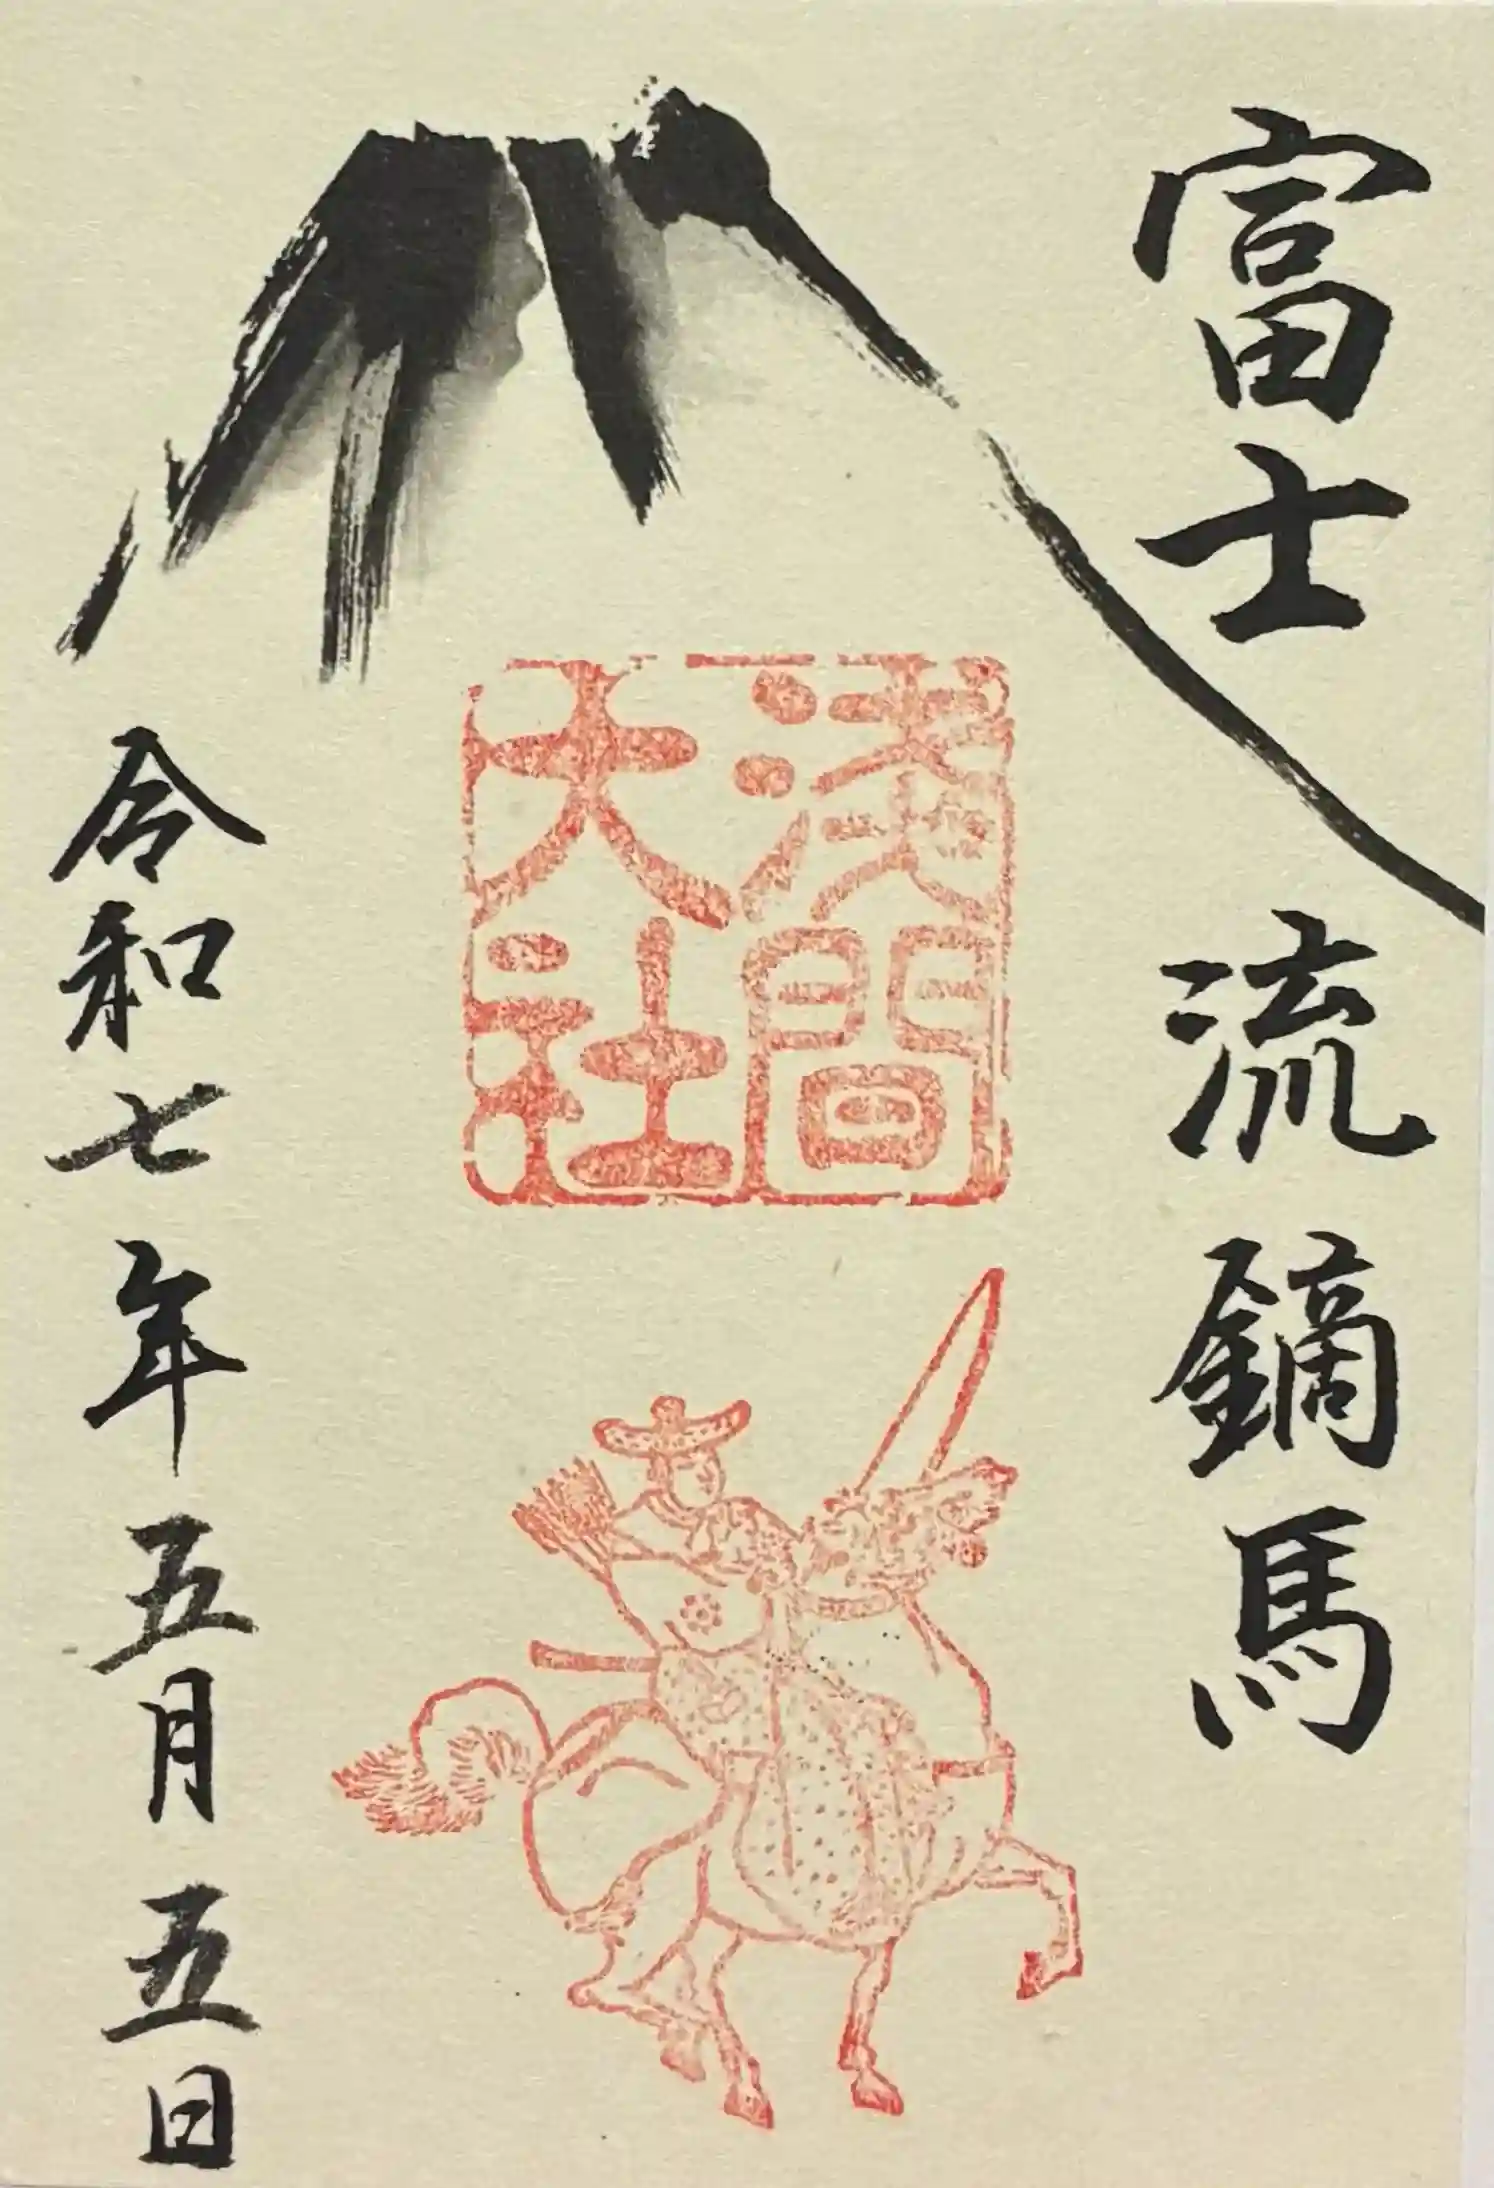 富士 流鏑馬
淺間
大社
令和七年五月五日